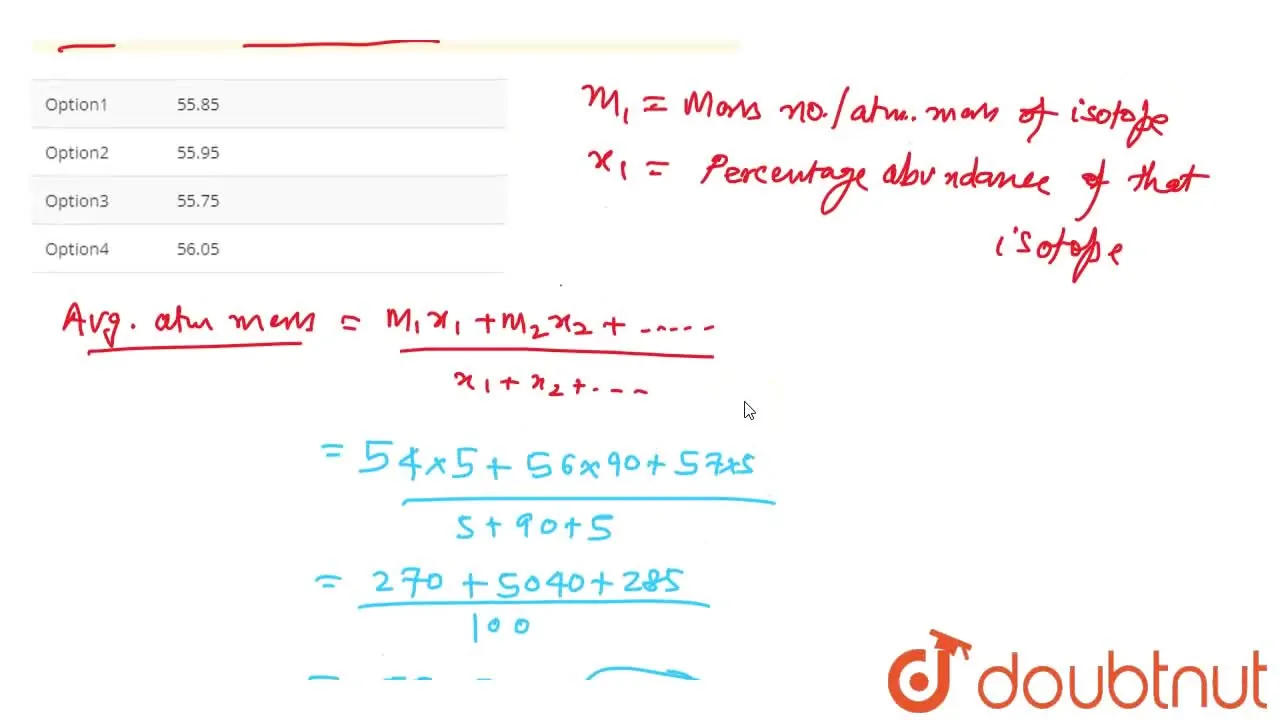 Option1 55.85
Option2 55.95
Option3 55.75
Option4 56.05
M₁ = Mass no./atm. mass of isotope
x₁ = Percentage abundance of that
isotope
Avg. atm mass = M₁x₁ + M₂x₂ + .....
x₁ + x₂ + ....
= 54×5 + 56×90 + 57×5
5 + 90 + 5
= 270 + 5040 + 285
100
doubtnut